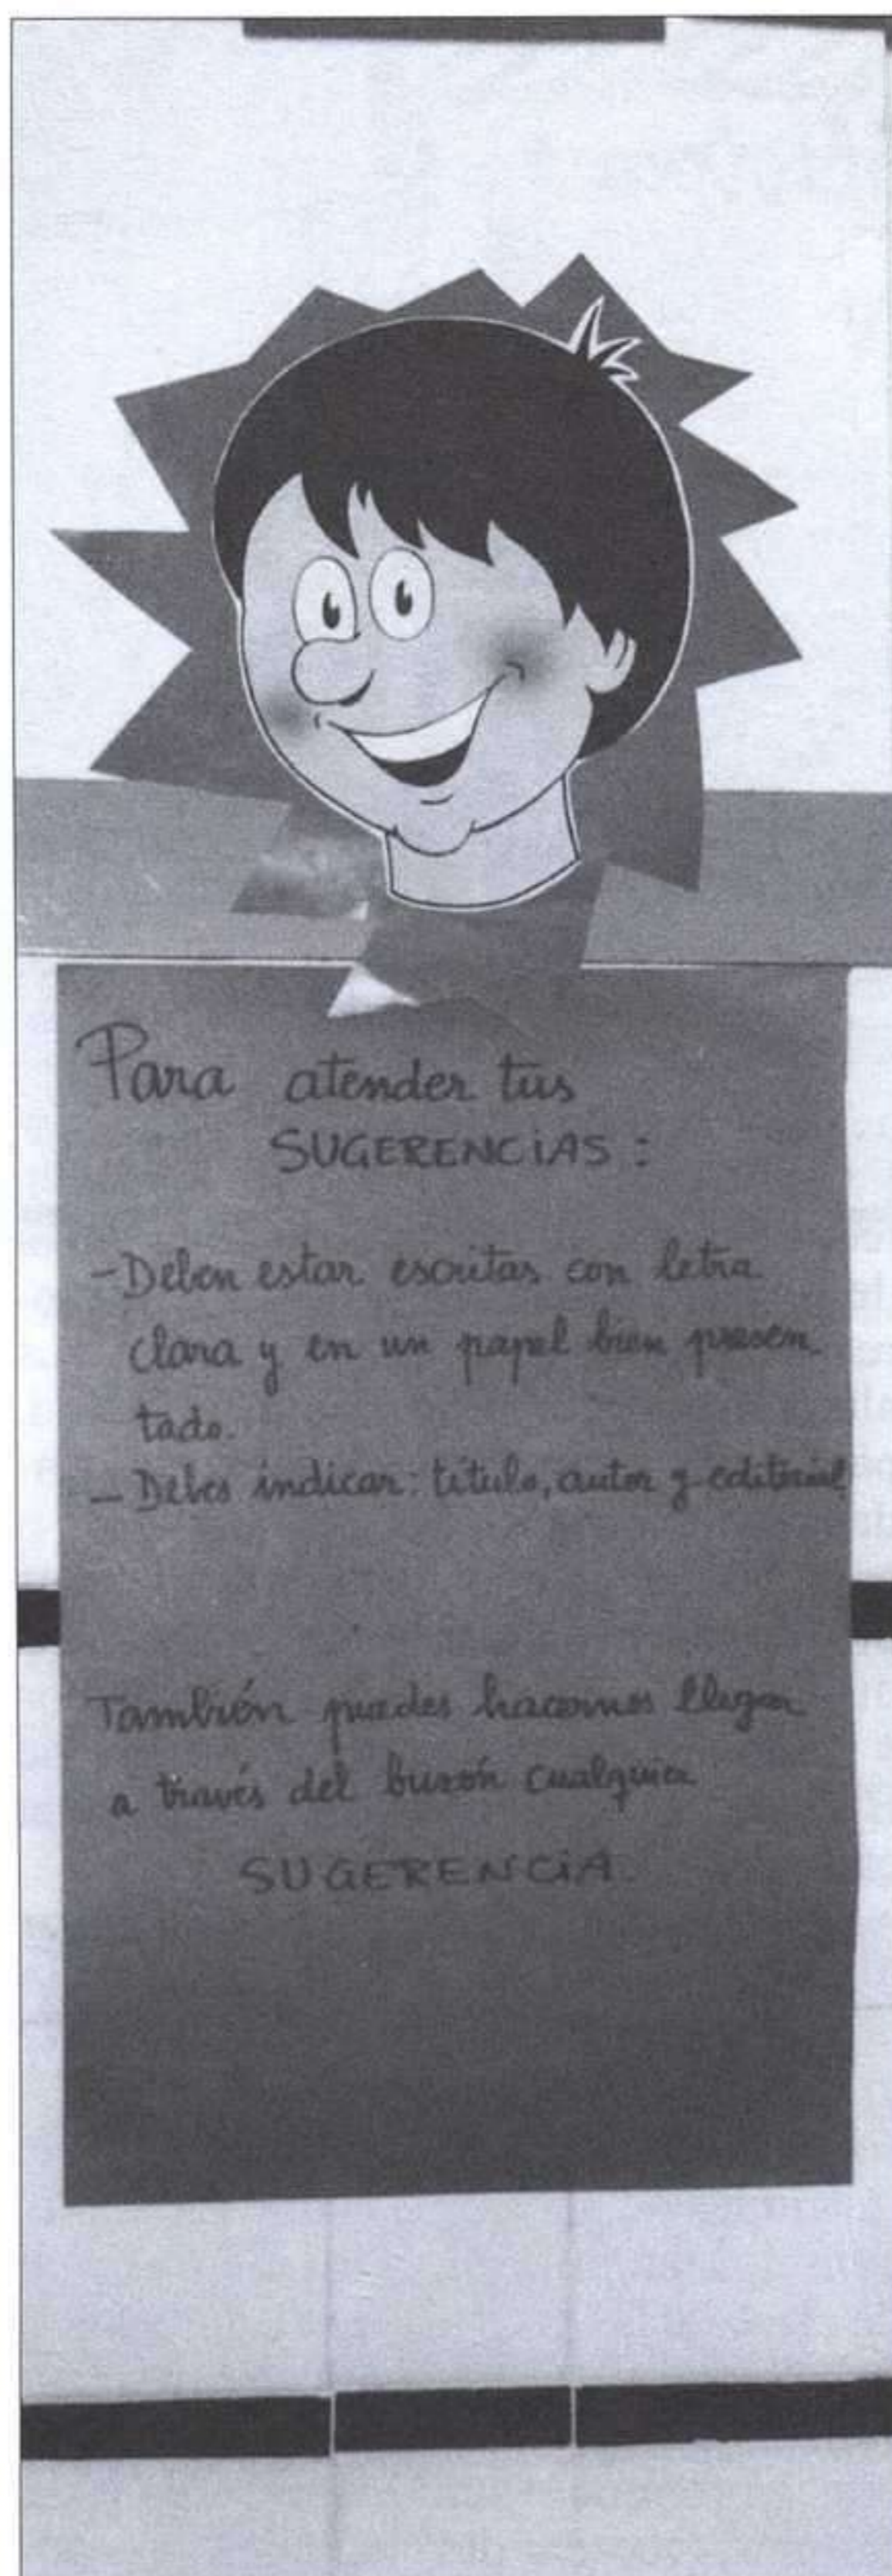 Para atender tus
SUGERENCIAS:
- Deben estar escritas con letra
clara y en un papel bien presen
tado.
- Debes indicar: título, autor y editorial
También puedes hacernos llegar
a través del buzón cualquier
SUGERENCIA.